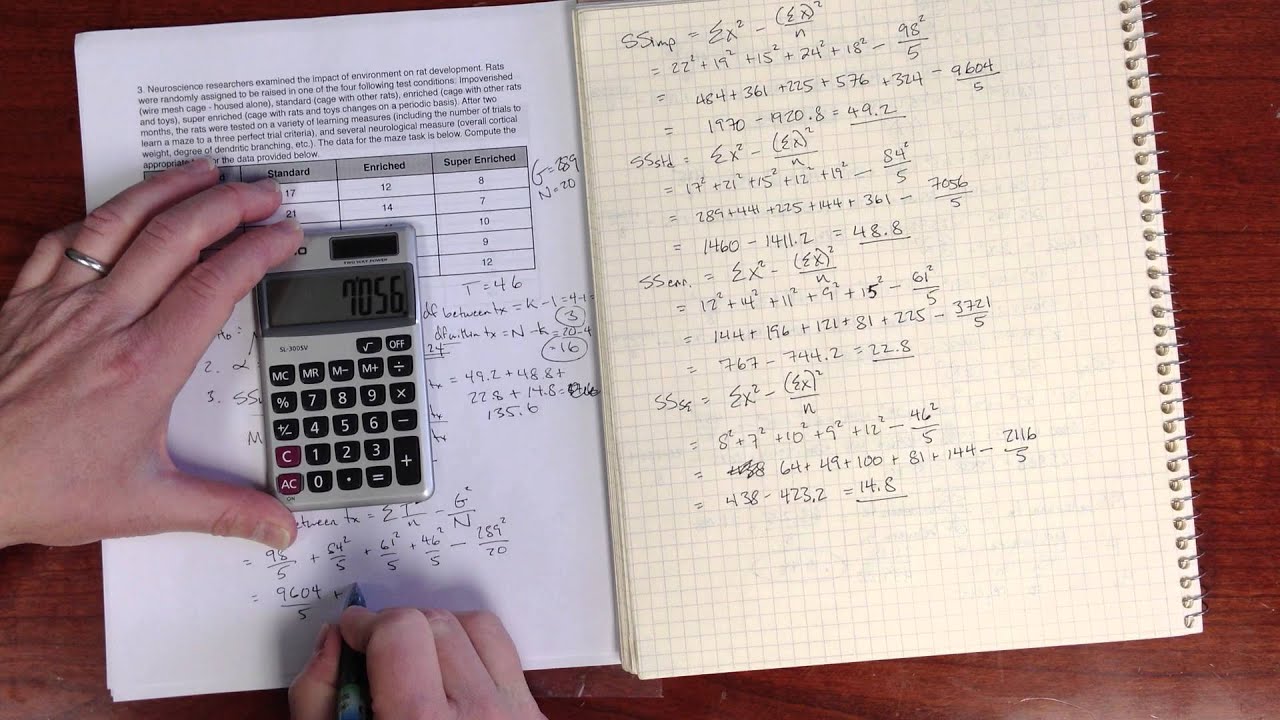 3. Neuroscience researchers examined the impact of environment on rat development. Rats
were randomly assigned to be raised in one of the four following test conditions: Impoverished
(wire mesh cage - housed alone), standard (cage with other rats), enriched (cage with other rats
and toys), super enriched (cage with rats and toys changes on a periodic basis). After two
months, the rats were tested on a variety of learning measures (including the number of trials to
learn a maze to a three perfect trial criteria), and several neurological measure (overall cortical
weight, degree of dendritic branching, etc.). The data for the maze task is below. Compute the
appropriate for the data provided below.
Standard Enriched Super Enriched
17 12 8
21 14 7
10
9
12
G=289
N=20
T=46
df between tx = K-1=4-1=
3
df within tx = N-K=20-4
=16
2. α
3. SS
= 49.2+48.8+
22.8+14.8=
135.6
M
between tx = Σ T²/n - G²/N
= 98/5 + 84²/5 + 61²/5 + 46²/5 - 289²/20
= 9604/5 +
7056.
TWO WAY POWER
SL-300SV
√ OFF
MC MR M- M+ ÷
% 7 8 9 ×
+/- 4 5 6 -
C 1 2 3 +
AC 0 · =
ON
SSimp = Σx² - (Σx)²/n
= 22²+19²+15²+24²+18² - 98²/5
= 484+361+225+576+324 - 9604/5
= 1970-1920.8 = 49.2
SSstd = Σx² - (Σx)²/n
= 17²+21²+15²+12²+19² - 84²/5
= 289+441+225+144+361 - 7056/5
= 1460-1411.2 = 48.8
SSenr. = Σx² - (Σx)²/n
= 12²+4²+11²+9²+15² - 61²/5
= 144+196+121+81+225 - 3721/5
= 767-744.2 = 22.8
SSSE = Σx² - (Σx)²/n
= 8²+7²+10²+9²+12² - 46²/5
= 64+49+100+81+144 - 2116/5
= 438-423.2 = 14.8